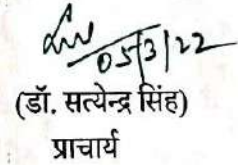 05/3/22
(डॉ. सत्येन्द्र सिंह)
प्राचार्य